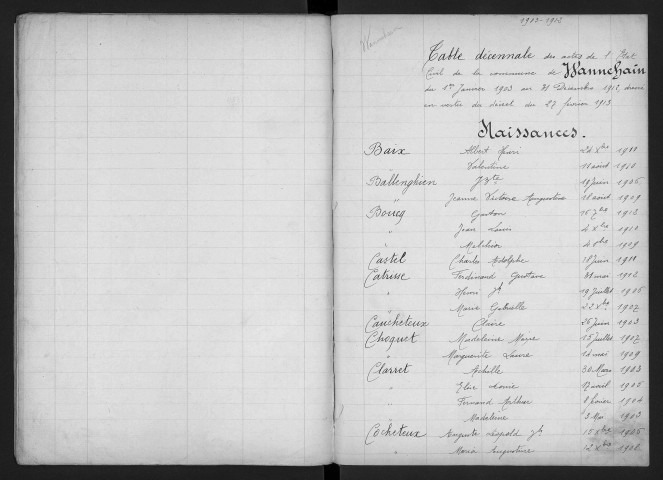 1903-1913
Wannehain
Table décennale des actes de l'Etat
Civil de la commune de Wannehain
du 1er Janvier 1903 au 31 Décembre 1912, dressé
en vertu du décret du 27 février 1913
Naissances.
Baix Albert Henri 24 Xbre 1911
" Valentine 11 août 1910
Ballenghien 19 juin 1906
" Jeanne Victoire Augustine août 1909
Bourg Gaston 16 7bre 1912
" Jean Louis 4 Xbre 1911
" Melchior 4 1909
Castel Charles Adolphe 18 juin 1911
Catrisse Ferdinand Gustave 31 mai 1912
" Henri Jh 19 juillet 1905
" Marie Gabrielle 22 Xbre 1907
Caucheteux Claire 26 juin 1903
Choquet Madeleine Marie 15 juillet 1907
" Marguerite Laure 12 mai 1909
Clarret Achille 30 Mars 1903
" Elise Marie 17 avril 1905
" Fernand Arthur 8 février 1904
" Madeleine 3 Mai 1903
Cocheteux Auguste Léopold Jh 15 Xbre 1905
" Maria Augustine 12 Xbre